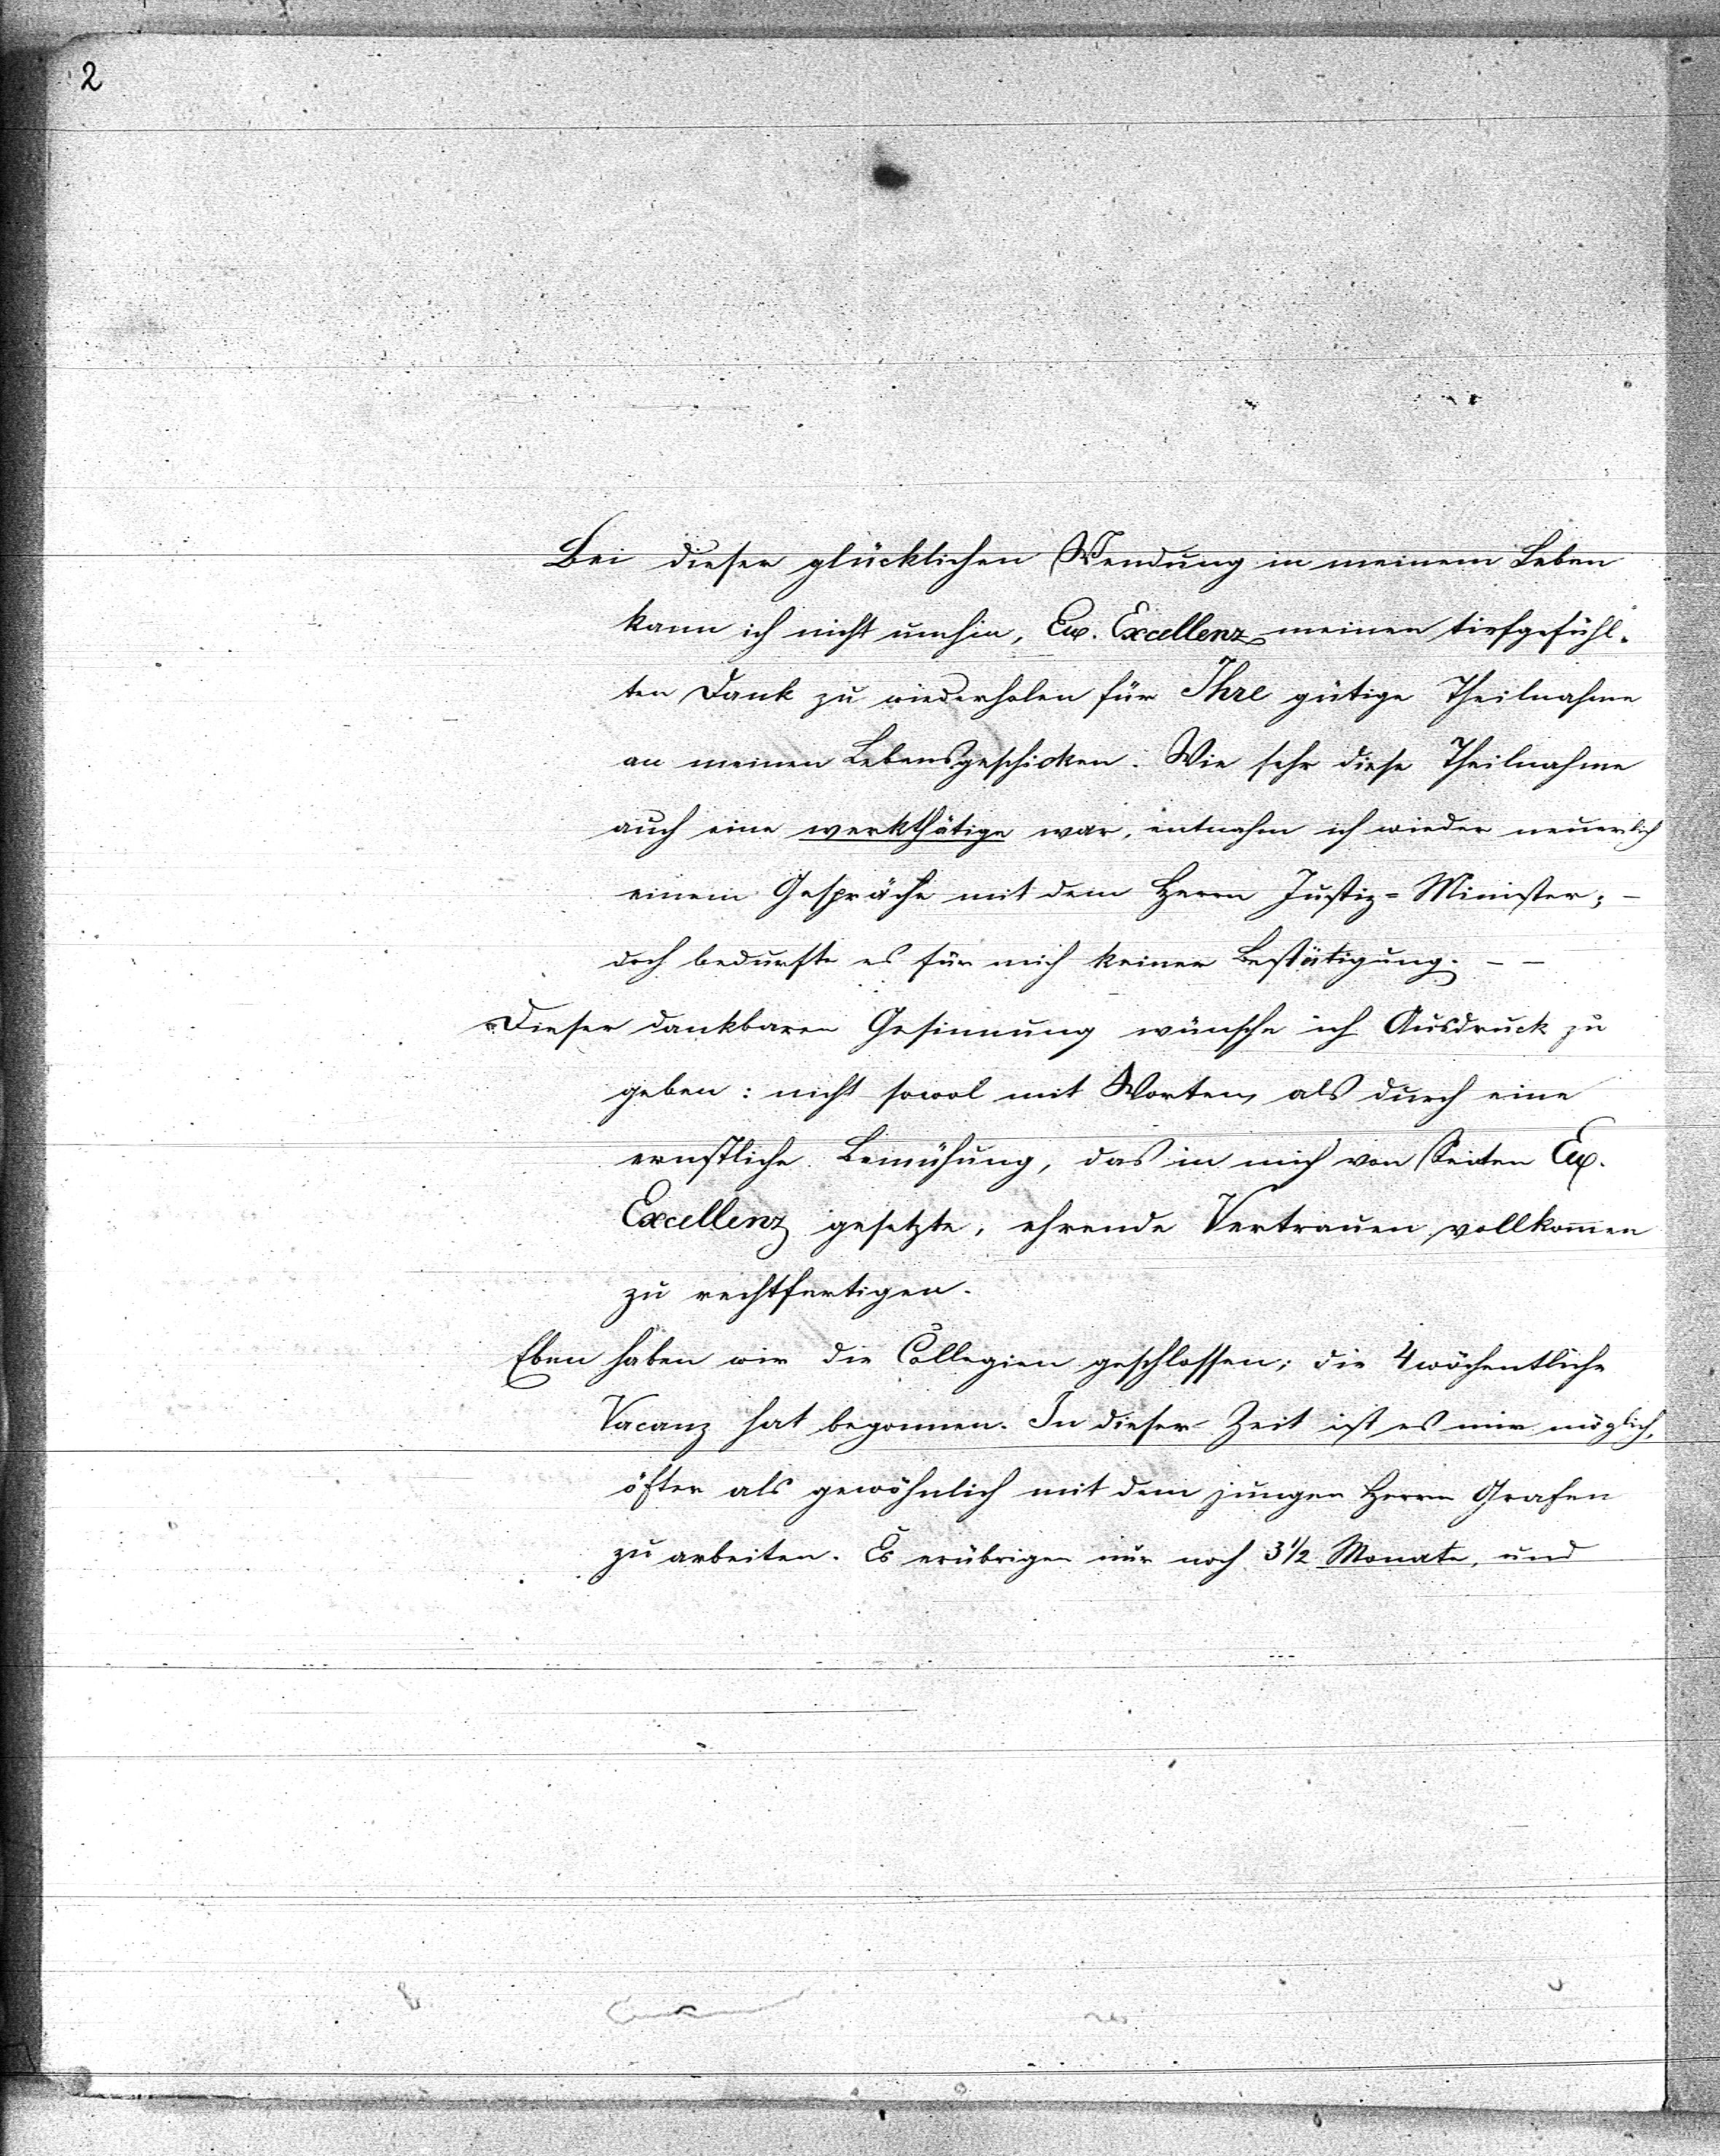 2
Bei dieser glücklichen Wendung in meinem Leben
kann ich nicht umhin, Ew. Excellenz meinen tiefgefühl-
ten Dank zu wiederholen für Ihre gütige Theilnahme
an meinen Lebensgeschicken. Wie sehr diese Theilnahme
auch eine werkthätige war, entnahm ich wieder neuerlich
einem Gespräche mit dem Herrn Justiz=Minister; –
doch bedurfte es für mich keiner Bestätigung. – –
Dieser dankbaren Gesinnung wünsche ich Ausdruck zu
geben: nicht sowol mit Worten, als durch eine
ernstliche Bemühung, das in mich von Seiten Ew.
Excellenz gesetzte, ehrende Vertrauen vollkom̄en
zu rechtfertigen.
Eben haben wir die Collegien geschlossen; die 4wöchentliche
Vacanz hat begonnen. In dieser Zeit ist es mir möglich,
öfter als gewöhnlich mit dem jungen Herrn Grafen
zu arbeiten. Es erübrigen nur noch 3½ Monate, und